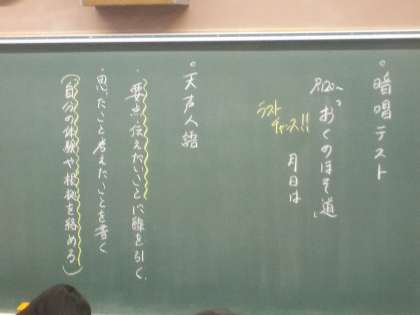 。暗唱テスト
P126~「おくのほそ道」
月日は
ラスト
チャンス!!
。天声人語
・要点、伝えたいことに線を引く。
・思ったこと考えたことを書く
(自分の体験や根拠を絡める)